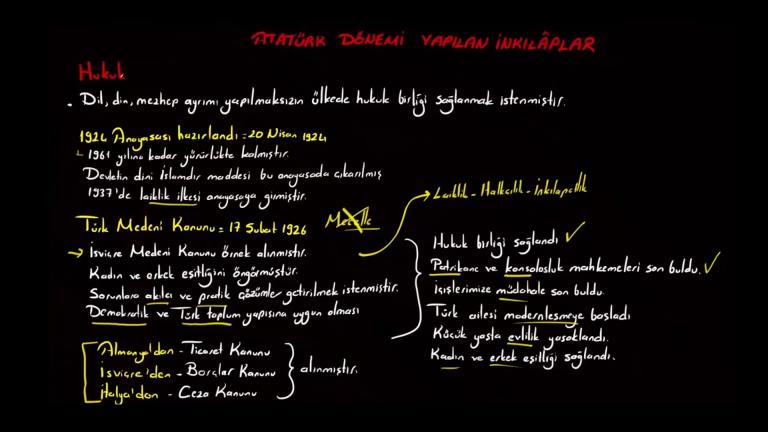 ATATÜRK DÖNEMİ YAPILAN İNKILÂPLAR
Hukuk
. Dil, din, mezhep ayrımı yapılmaksızın ülkede hukuk birliği sağlanmak istenmiştir.
1924 Anayasası hazırlandı = 20 Nisan 1924
1961 yılına kadar yürürlükte kalmıştır.
Devletin dini İslamdır maddesi bu anayasada çıkarılmış
1937'de laiklik ilkesi anayasaya girmiştir.
Türk Medeni Kanunu = 17 Şubat 1926
Mecelle
→ İsviçre Medeni Kanunu örnek alınmıştır.
Kadın ve erkek eşitliğini öngörmüştür.
Sorunlara akılcı ve pratik çözümler getirilmek istenmiştir.
Demokratik ve Türk toplum yapısına uygun olması
→ Laiklik - Halkçılık - İnkılapçılık
Hukuk birliği sağlandı ✓
Patrikane ve konsolosluk mahkemeleri son buldu. ✓
İçişlerimize müdahale son buldu.
Türk ailesi modernleşmeye başladı
Küçük yaşta evlilik yasaklandı.
Kadın ve erkek eşitliği sağlandı.
Almanya'dan - Ticaret Kanunu
İsviçre'den - Borçlar Kanunu
İtalya'dan - Ceza Kanunu
alınmıştır.